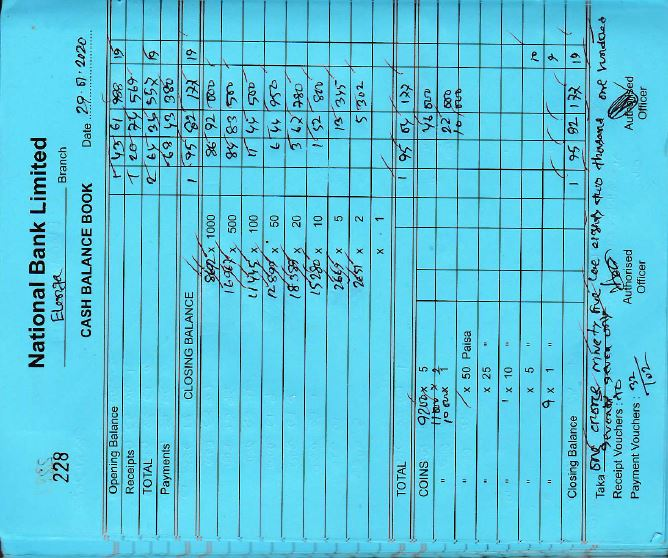 228
National Bank Limited
Branch
CASH BALANCE BOOK Date 29.07.2020
Opening Balance 1 43 61 988 19
Receipts 1 20 74 569
TOTAL 2 64 557 19
Payments 68 380
CLOSING BALANCE 1 95 82 177 19
8692 x 1000 86 92 000
16967 x 500 84 83 500
11445 x 100 11 44 500
12899 x 50 6 44 950
18389 x 20 3 67 780
15280 x 10 1 52 800
2669 x 5 13 345
2651 x 2 5 302
x 1
TOTAL 1 95 04 177
COINS 9200 x 5 46 000
" 11000 x 2 22 000
" 10000 x 1 10 000
" x 50 Paisa
" x 25 "
" x 10 "
" x 5 " 10
" 9 x 1 " 9
Closing Balance 1 95 82 177 19
Taka One crore ninety five lac eighty two thousand one hundred
seventy seven only
Receipt Vouchers :
Payment Vouchers : 32
102
Authorised
Officer
Authorised
Officer